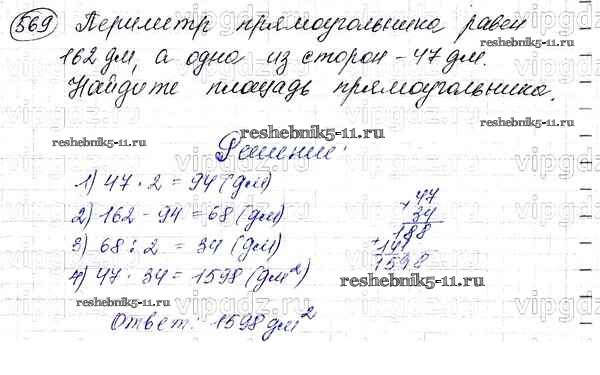 569 Периметр прямоугольника равен
162 дм, а одна из сторон - 47 дм.
Найдите площадь прямоугольника.
reshebnik5-11.ru
reshebnik5-11.ru
reshebnik5-11.ru
Решение:
1) 47 · 2 = 94 (дм)
2) 162 - 94 = 68 (дм)
3) 68 : 2 = 34 (дм)
4) 47 · 34 = 1598 (дм²)
47
× 34
188
+ 141
1598
reshebnik5-11.ru
reshebnik5-11.ru
Ответ: 1598 дм²
vipgdz.com